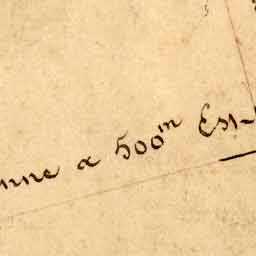 nne a 500m Est